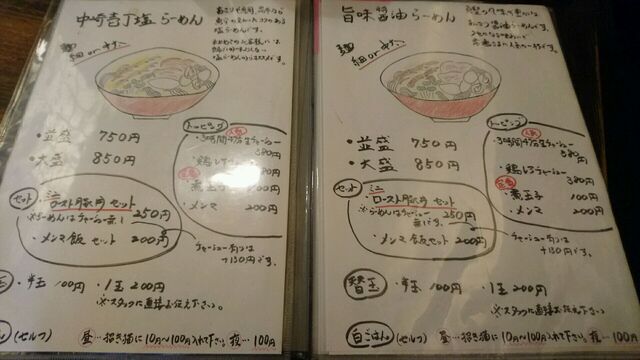 中崎壱丁塩らーめん
麺 細 or 中太
・並盛 750円
・大盛 850円
トッピング
人気
380円
・鶏レアチャーシュー
380円
定番
・煮玉子 100円
・メンマ 200円
セット
ミニ
・ロースト豚丼 セット
※らーめんはチャーシュー無し 250円
・メンマ飯 セット 200円
チャーシュー有りは
+130円です。
・半玉 100円 ・1玉 200円
※スタッフに直接お伝え下さい。
(セルフ) 昼…招き猫に10円~100円入れて下さい。夜…100円
旨味醤油らーめん
麺 細 or 中太
・並盛 750円
・大盛 850円
トッピング
人気
380円
・鶏レアチャーシュー
380円
定番
・煮玉子 100円
・メンマ 200円
セット
ミニ
・ロースト豚丼 セット
※らーめんはチャーシュー無しです。 250円
・メンマ飯 セット 200円
チャーシュー有りは
+130円です。
替玉 ・半玉 100円 ・1玉 200円
※スタッフに直接お伝え下さい。
白ごはん (セルフ) 昼…招き猫に10円~100円入れて下さい。夜…100円